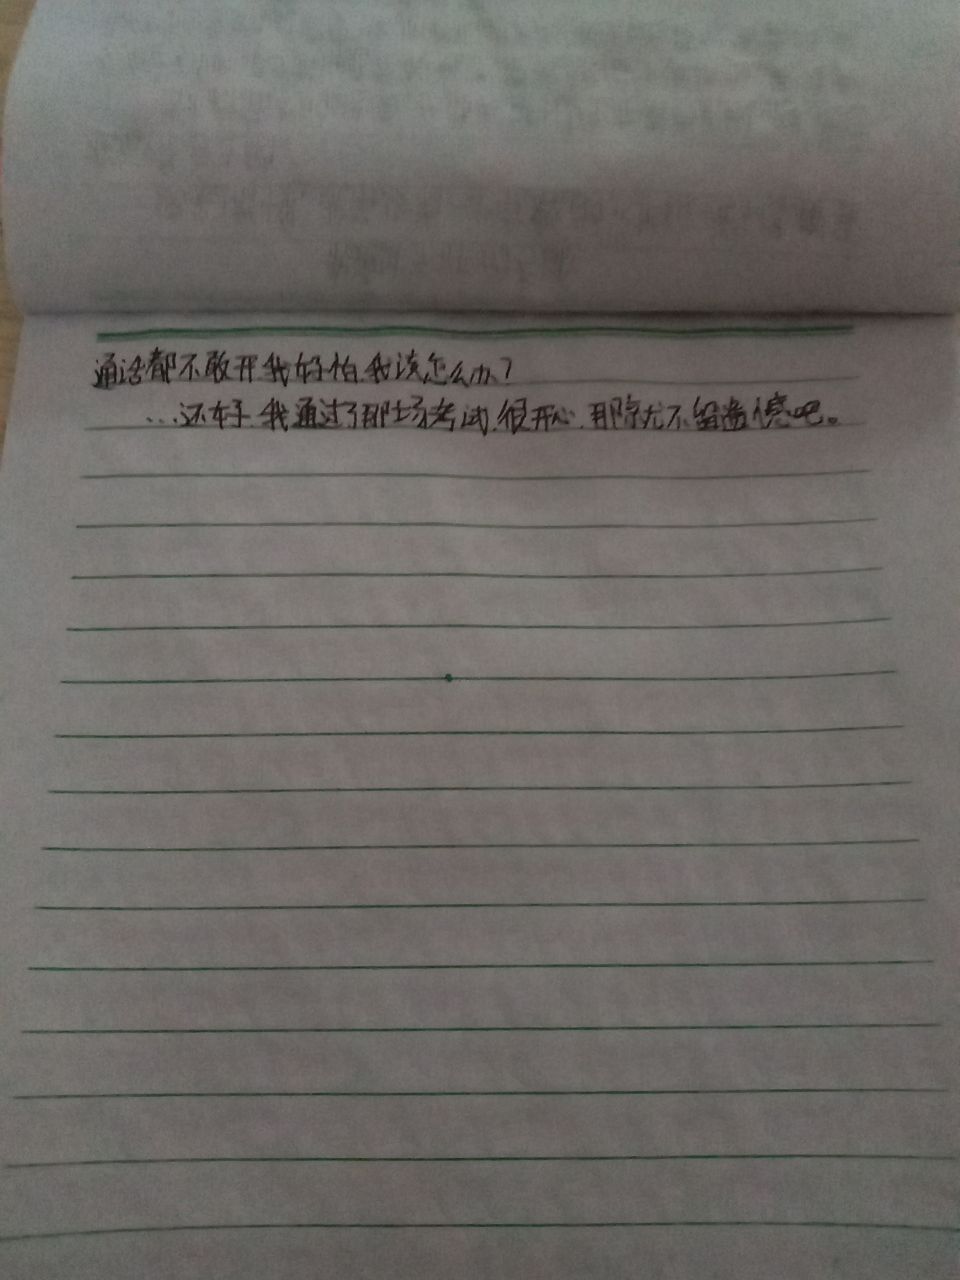 通话都不敢开.我好怕.我该怎么办?
...还好.我通过了那场考试.很开心.那就不留遗憾吧。